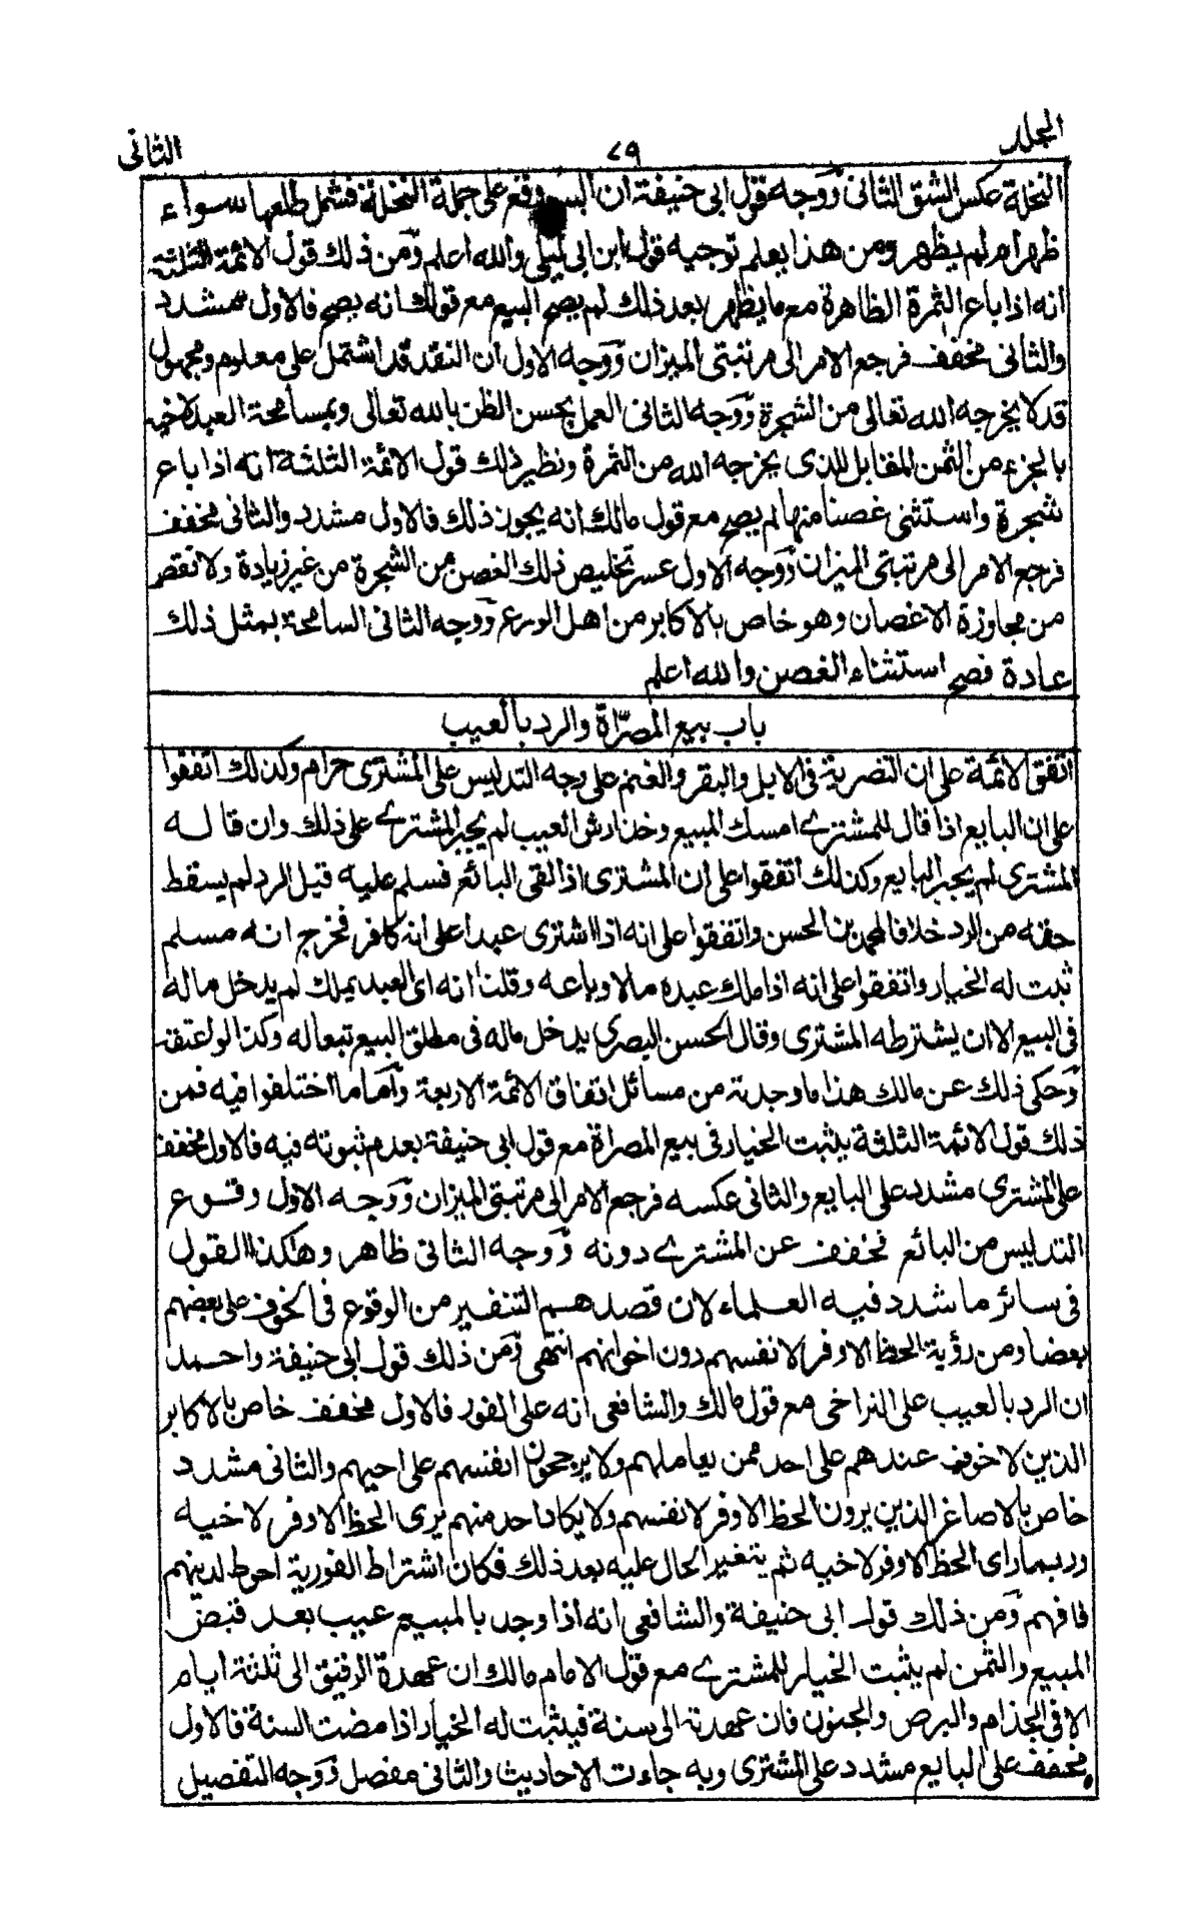 المجلد
٧٩
الثانى
النخلة عكس الشق الثانى ووجه قول ابى حنيفة ان البيع وقع على جملة النخلة فشمل طلعها سواء
ظهر ام لم يظهر ومن هذا يعلم توجيه قول ابن ابى ليلى والله اعلم ومن ذلك قول الائمة الثلثة
انه اذا باع الثمرة الظاهرة مع ما يظهر بعد ذلك لم يصح البيع مع قول مالك انه يصح فالاول مشدد
والثانى مخفف فرجع الامر الى مرتبتى الميزان ووجه الاول ان النقد قد اشتمل على معلوم ومجهول
قد لا يخرجه الله تعالى من الشجرة ووجه الثانى العمل بحسن الظن بالله تعالى وبمسامحة العبد لاخيه
بالجزء من الثمن المقابل للذى يخرجه الله من الثمرة ونظير ذلك قول الائمة الثلثة انه اذا باع
شجرة واستثنى غصنا منها لم يصح مع قول مالك انه يجوز ذلك فالاول مشدد والثانى مخفف
فرجع الامر الى مرتبتى الميزان ووجه الاول عسر تخليص ذلك الغصن من الشجرة من غير زيادة ولا نقص
من مجاوزة الاغصان وهو خاص بالاكابر من اهل الورع ووجه الثانى السامحة بمثل ذلك
عادة فصح استثناء الغصن والله اعلم
باب بيع المصرّاة والرد بالعيب
اتفق الائمة على ان التصرية فى الابل والبقر والغنم على وجه التدليس على المشترى حرام وكذلك اتفقوا
على ان البايع اذا قال للمشترے امسك المبيع وخذ ارش العيب لم يجبر المشترے على ذلك وان قاله
المشترى لم يجبر البايع وكذلك اتفقوا على ان المشترى اذا لقى البائع فسلم عليه قبل الرد لم يسقط
حقه من الرد خلافا لمحمد بن الحسن واتفقوا على انه اذا اشترى عبدا على انه كافر فخرج انه مسلم
ثبت له الخيار واتفقوا على انه اذا ملك عبده مالا وباعه وقلنا انه اى العبد يملك لم يدخل ماله
فى البيع الا ان يشترطه المشترى وقال الحسن البصرى يدخل ماله فى مطلق البيع تبعا له وكذا لو اعتقه
وحكى ذلك عن مالك هذا ما وجدته من مسائل اتفاق الائمة الاربعة وأما ما اختلفوا فيه فمن
ذلك قول الائمة الثلثة يثبت الخيار فى بيع المصراة مع قول ابى حنيفة بعدم ثبوته فيه فالاول مخفف
على المشترى مشدد على البايع والثانى عكسه فرجع الامر الى مرتبتى الميزان ووجه الاول وقوع
التدليس من البائع فخفف عن المشترے دونه ووجه الثانى ظاهر وهكذا القول
فى سائر ما شدد فيه العلماء لان قصدهم التنفير من الوقوع فى الخوف على بعضهم
بعضا ومن رؤية الحظ الاوفر لانفسهم دون اخوانهم انتهى ومن ذلك قول ابى حنيفة واحمد
ان الرد بالعيب على التراخى مع قول مالك والشافعى انه على الفور فالاول مخفف خاص بالاكابر
الذين لا خوف عندهم على احد ممن يعاملهم ولا يرجحون انفسهم على احيهم والثانى مشدد
خاص بالاصاغر الذين يرون الحظ الاوفر لانفسهم ولا يكاد احد منهم يرى الحظ الاوفر لاخيه
وربما راى الحظ الاوفر لاخيه ثم يتغير الحال عليه بعد ذلك فكان اشتراط الفورية احوط لدينهم
فافهم ومن ذلك قول ابى حنيفة والشافعى انه اذا وجد بالمبيع عيب بعد قبض
المبيع والثمن لم يثبت الخيار للمشترے مع قول الامام مالك ان عهدة الرقيق الى ثلثة ايام
الا فى الجذام والبرص والجنون فان عهدته الى سنة فيثبت له الخيار اذا مضت السنة فالاول
مخفف على البايع مشدد على المشترى وبه جاءت الاحاديث والثانى مفصل ووجه التفصيل